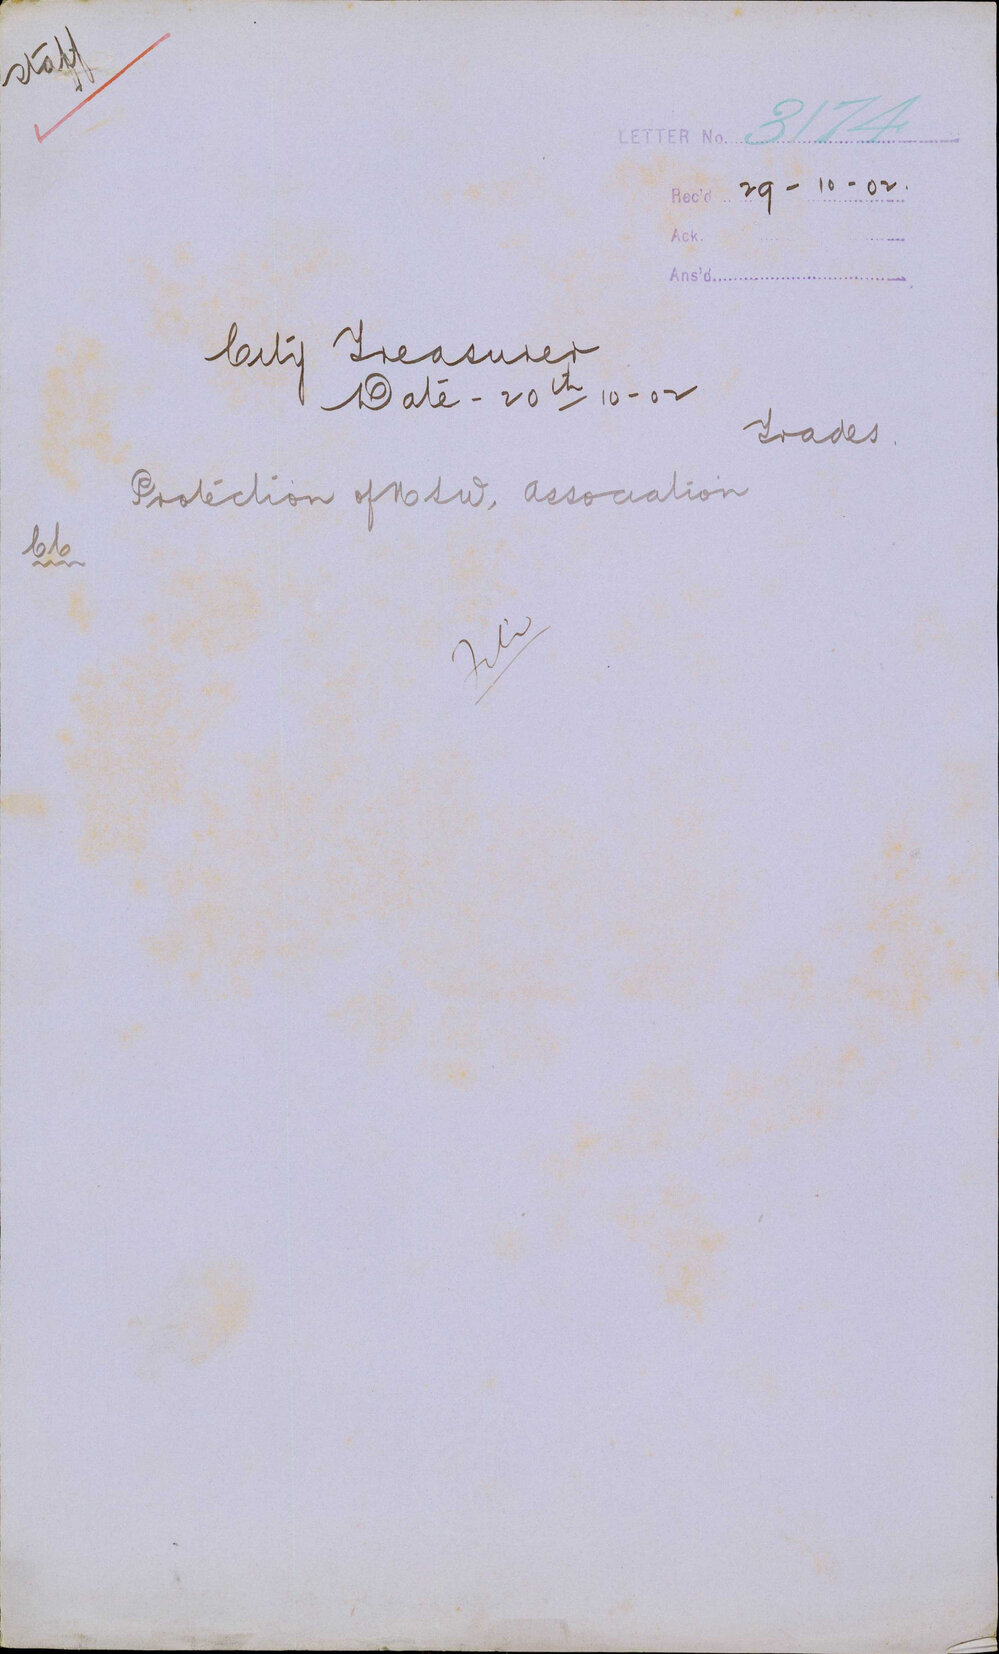 Staff
LETTER No. 3174
Rec'd 29-10-02.
Ack.
Ans'd
City Treasurer
Date - 20th 10-02
Trades
Protection of NSW, Association
CC
File